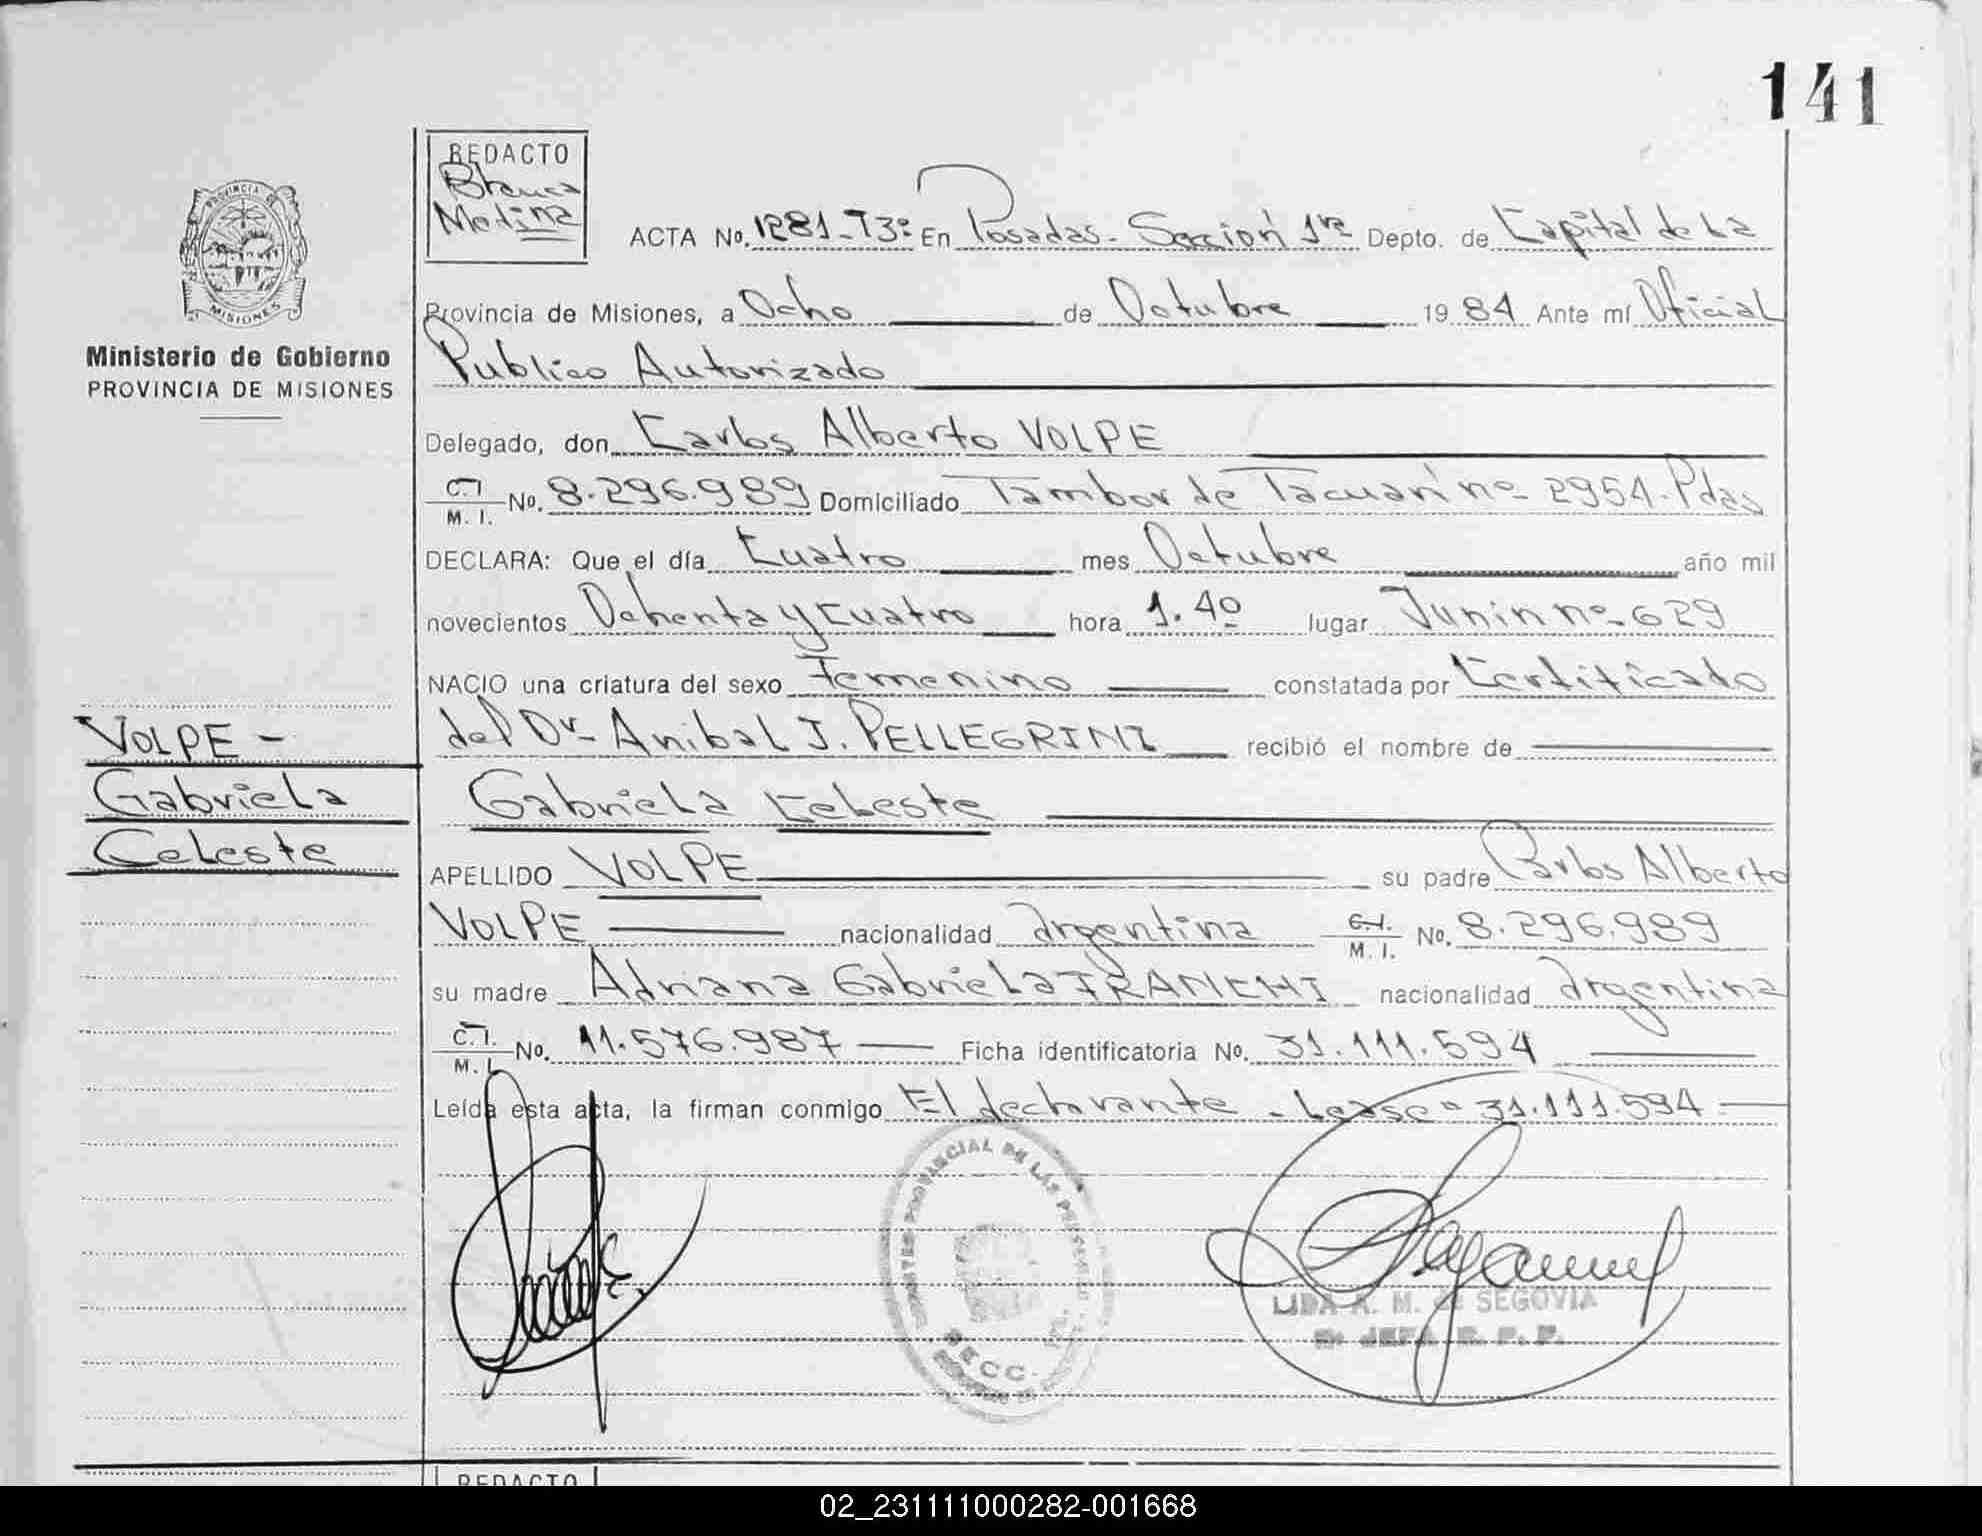 141
REDACTO
Blanca
Medina
ACTA No. 1281-T3º En Posadas-Sección 1ra Depto. de Capital de La
Provincia de Misiones, a Ocho de Octubre 1984 Ante mí Oficial
Publico Autorizado
Delegado, don Carlos Alberto VOLPE
C.I.
M. I. No. 8.296.989 Domiciliado Tambor de Tacuarí nº 2954-Pdas
DECLARA: Que el día Cuatro mes Octubre año mil
novecientos Ochenta y Cuatro hora 1.40 lugar Junín nº-629
NACIO una criatura del sexo Femenino constatada por Certificado
del Dr- Anibal J. PELLEGRINI recibió el nombre de
Gabriela Celeste
APELLIDO VOLPE su padre Carlos Alberto
VOLPE nacionalidad argentina C.I.
M. I. No. 8.296.989
su madre Adriana Gabriela FRANCHI nacionalidad argentina
C.I.
M. I. No. 11.576.987 Ficha identificatoria No. 31.111.594
Leída esta acta, la firman conmigo El declarante - Lease " 31.111.594
PROVINCIA DE
MISIONES
Ministerio de Gobierno
PROVINCIA DE MISIONES
VOLPE -
Gabriela
Celeste
PROVINCIAL DE LAS PERSONAS
SECC.
LIDA A. M. de SEGOVIA
JEFA
REDACTO
02_231111000282-001668